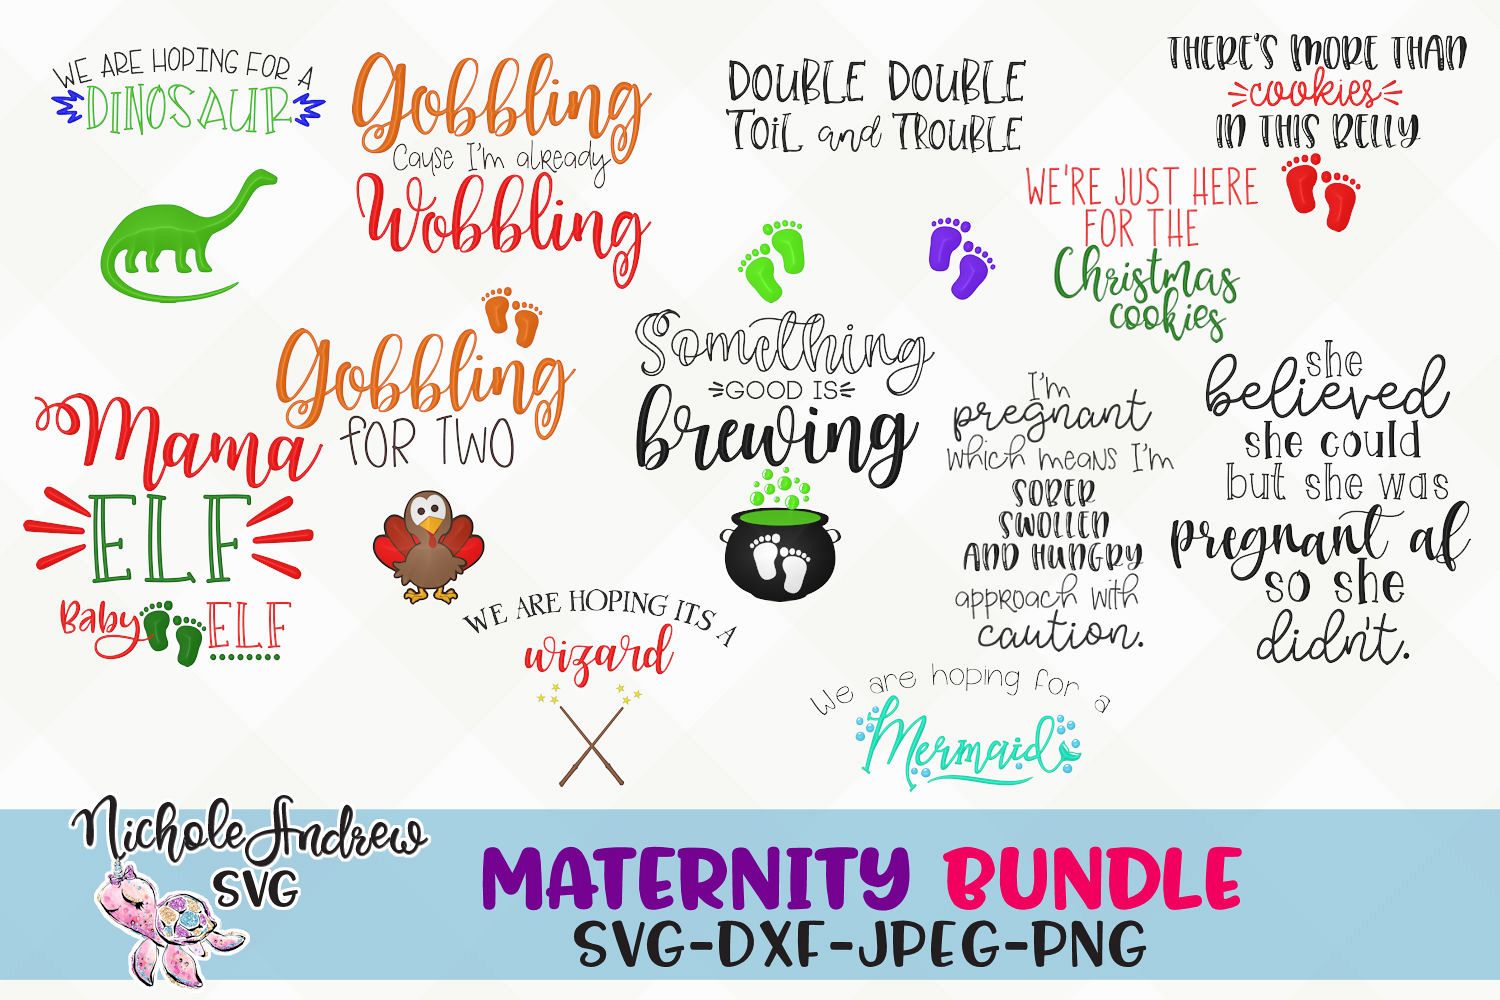 WE ARE HOPING FOR A
DINOSAUR
Gobbling
Cause I'm already
Wobbling
DOUBLE DOUBLE
TOIL and TROUBLE
THERE'S MORE THAN
cookies
IN THIS BELLY
WE'RE JUST HERE
FOR THE
Christmas
cookies
Gobbling
FOR TWO
Something
GOOD IS
brewing
Mama
ELF
Baby ELF
I'm
pregnant
which means I'm
SOBER
SWOLLEN
AND HUNGRY
approach with
caution.
she
believed
she could
but she was
pregnant af
so she
didn't.
WE ARE HOPING ITS A
wizard
We are hoping for a
Mermaid
Nichole Andrew
SVG
MATERNITY BUNDLE
SVG-DXF-JPEG-PNG